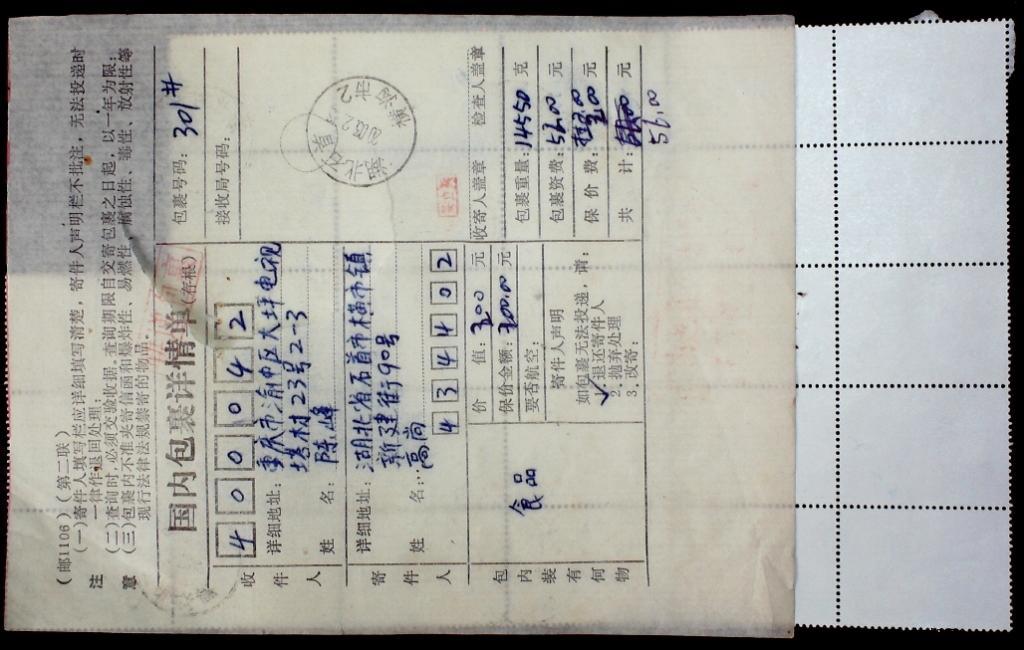 (邮1106)(第二联)
注意
(一)寄件人填写栏应详细填写清楚，寄件人声明栏不批注，无法投递时
一律作退回处理；
(二)查询时，必须交验收据，查询期限自交寄包裹之日起，以一年为限；
(三)包裹内不准夹寄信函和爆炸性、易燃性、腐蚀性、毒性、放射性等
现行法律法规禁寄的物品。
国内包裹详情单(存根)
包裹号码：301#
接收局号码：
收件人
400042
详细地址：重庆市渝中区大坪电视
塔村23号2-3
姓名：陈峰
寄件人
详细地址：湖北省石首市横市镇
新建街90号
姓名：高尚
434402
湖北石首
横沟市 2
收寄人盖章
检查人盖章
包内装有何物
食品
价值：300元
保价金额：300.00元
要否航空：
寄件人声明
如包裹无法投递，请：
✓1.退还寄件人
2.抛弃处理
3.改寄：
包裹重量：14550克
包裹资费：53.00元
保价费：3.00元
共计：元
56.00